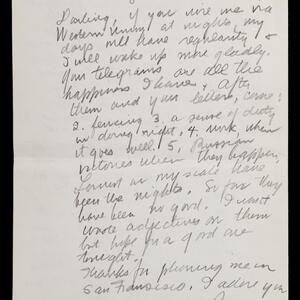 Darling, if you wire me via
Western Union at nights, my
days will have regularity &
I will wake up more gladly.
Your telegrams are all the
happiness I have. After
them and your letters, come:
2. fencing 3. a sense of duty
in doing right, 4. work when
it goes well 5, Russian
victories when they happen,
Lowest on my scale have
been the nights. So far they
have been no good. I won't
waste adjectives on them
but hope for a good one
tonight.
Thanks for phoning me in
San Francisco. I adore you